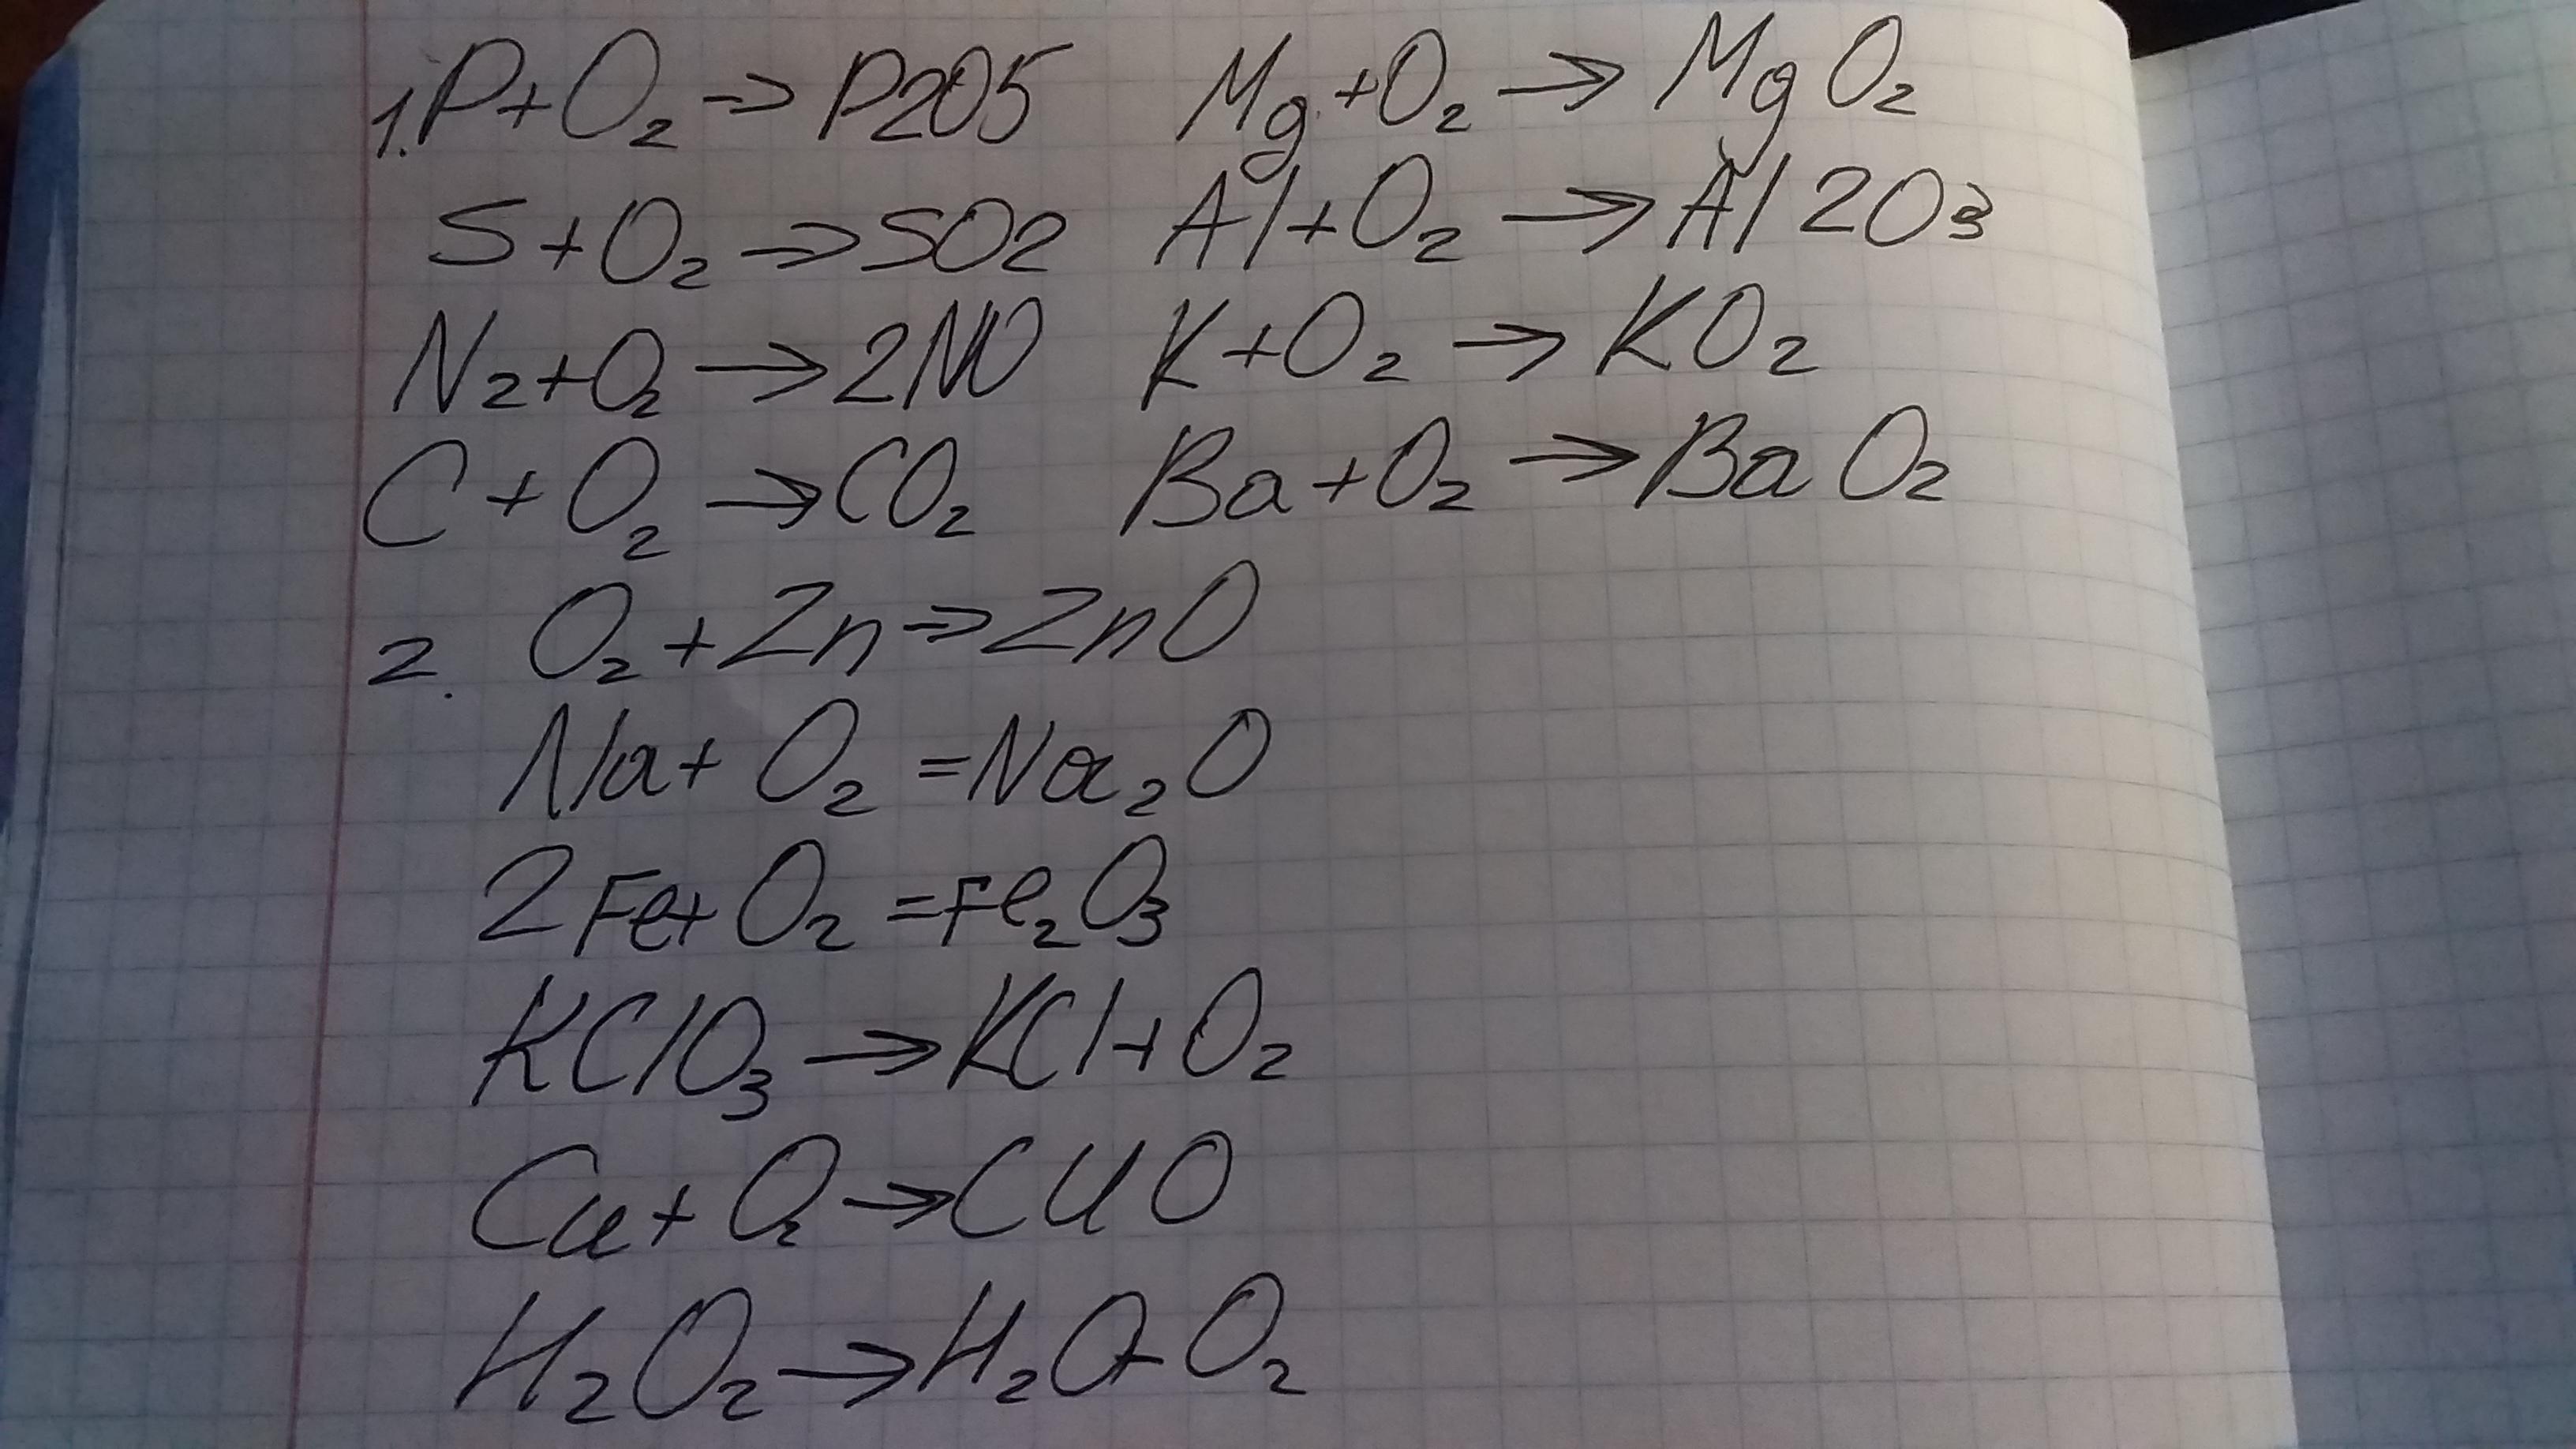 1. P + O₂ → P2O5   Mg + O₂ → MgO₂
S + O₂ → SO2   Al + O₂ → Al2O₃
N₂ + O₂ → 2NO   K + O₂ → KO₂
C + O₂ → CO₂   Ba + O₂ → BaO₂
2. O₂ + Zn → ZnO
Na + O₂ = Na₂O
2Fe + O₂ = Fe₂O₃
KClO₃ → KCl + O₂
Cu + O₂ → CuO
H₂O₂ → H₂O + O₂